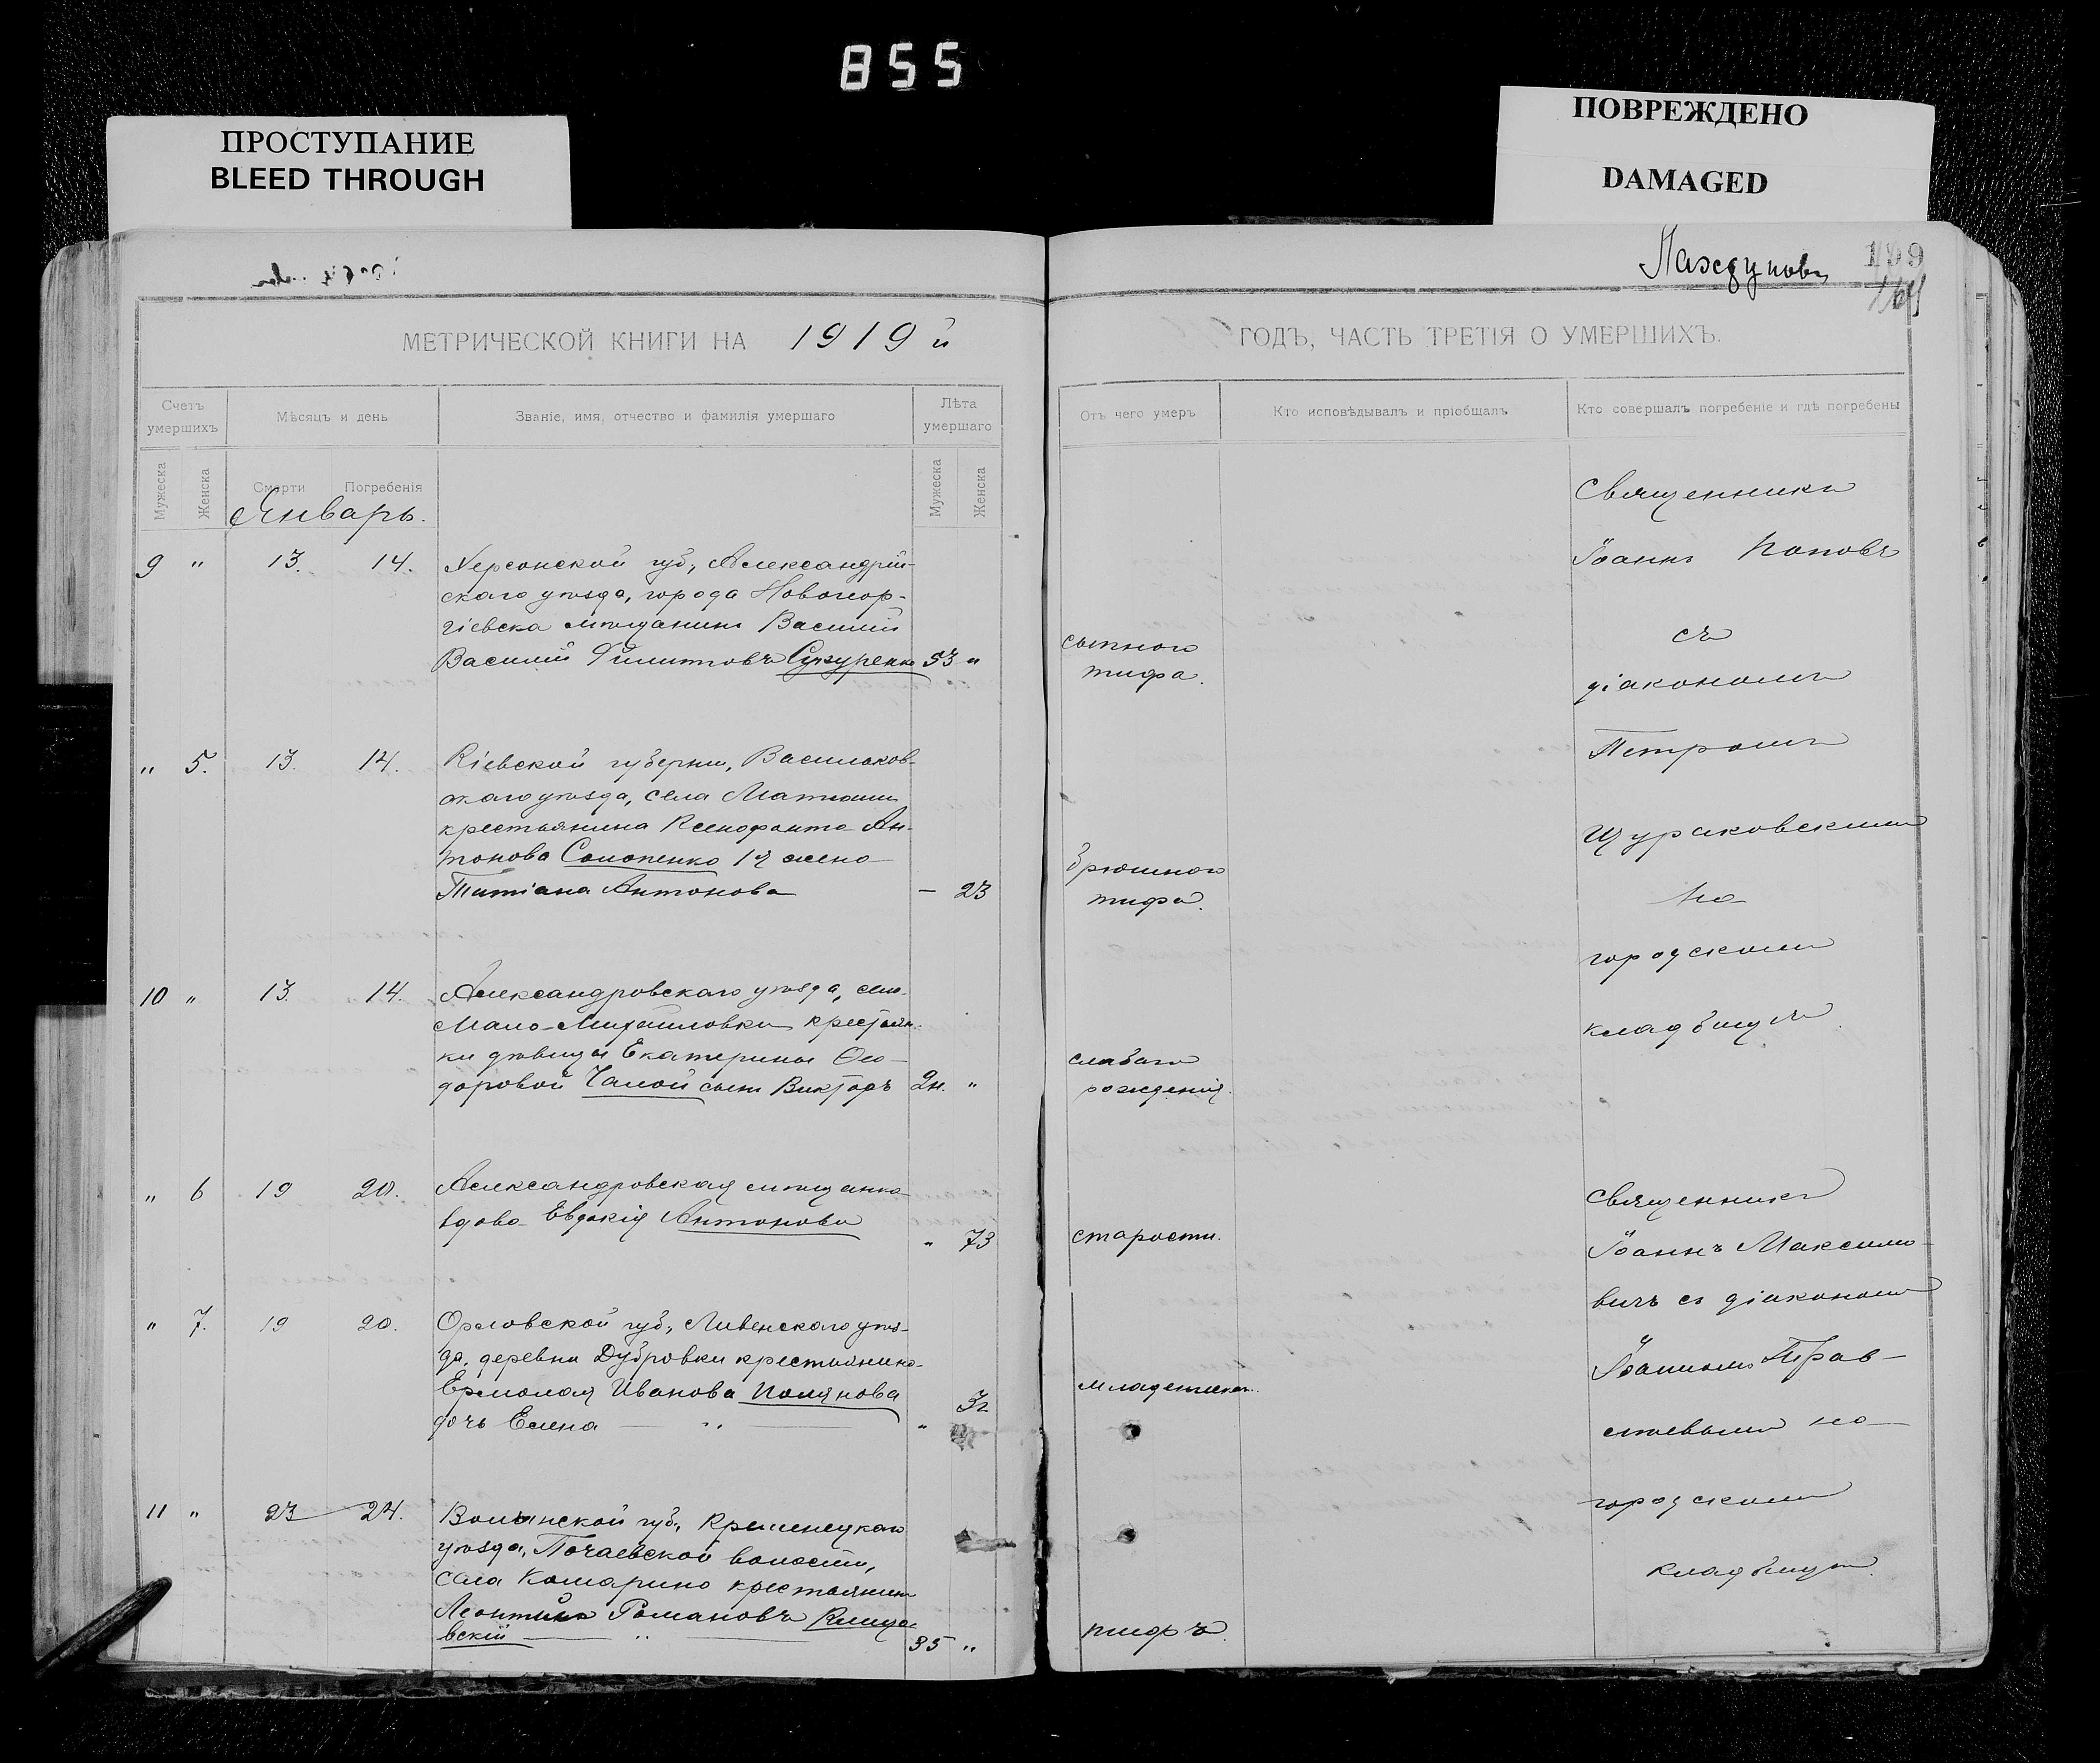 855
ПРОСТУПАНИЕ
BLEED THROUGH
ПОВРЕЖДЕНО
DAMAGED
199
164
МЕТРИЧЕСКОЙ КНИГИ НА 1919 й
ГОДЪ, ЧАСТЬ ТРЕТІЯ О УМЕРШИХЪ.
Счетъ умершихъ
Мѣсяцъ и день
Званіе, имя, отчество и фамилія умершаго
Лѣта умершаго
Отъ чего умеръ
Кто исповѣдывалъ и пріобщалъ
Кто совершалъ погребеніе и гдѣ погребены
Мужеска
Женска
Смерти
Погребенія
Мужеска
Женска
Январь.
9 " 13. 14. Херсонской губ., Александрій-
скаго уѣзда, города Новогеор-
гіевска мѣщанинъ Василій
Василій Филиповъ 53 "
сыпного
тифа.
" 5. 13. 14. Кіевской губерніи, Васильков-
скаго уѣзда, села Матюши
крестьянина Ксенофонта Ан-
тонова Солопенко 1я жена
Татіана Антонова — 23
брюшного
тифа.
10 " 13. 14. Александровскаго уѣзда, села
Мало-Михайловки крестьян-
ки дѣвицы Екатерины Ѳео-
доровой Чалой сынъ Викторъ 2н. "
слабаго
рожденія.
Священникъ
Іоаннъ Поповъ
съ
діакономъ
Петромъ
Щураковскимъ
на
городскомъ
кладбищѣ.
" 6 19 20. Александровская мѣщанка
вдова Евдокія Антонова
" 73
старости.
" 7. 19 20. Орловской губ., Ливенскаго уѣз-
да, деревни Дубровки крестьянина
Ермолая Иванова Полянова
дочь Елена " 3г
младенческ.
11 " 23 24. Волынской губ., Кременецкаго
уѣзда, Почаевской волости,
села Комарино крестьянинъ
Леонтій Романовъ
вскій 35 "
тифъ.
Священникъ
Іоаннъ Максимо-
вичъ съ діакономъ
Іоанномъ
на
городскомъ
кладбищѣ.